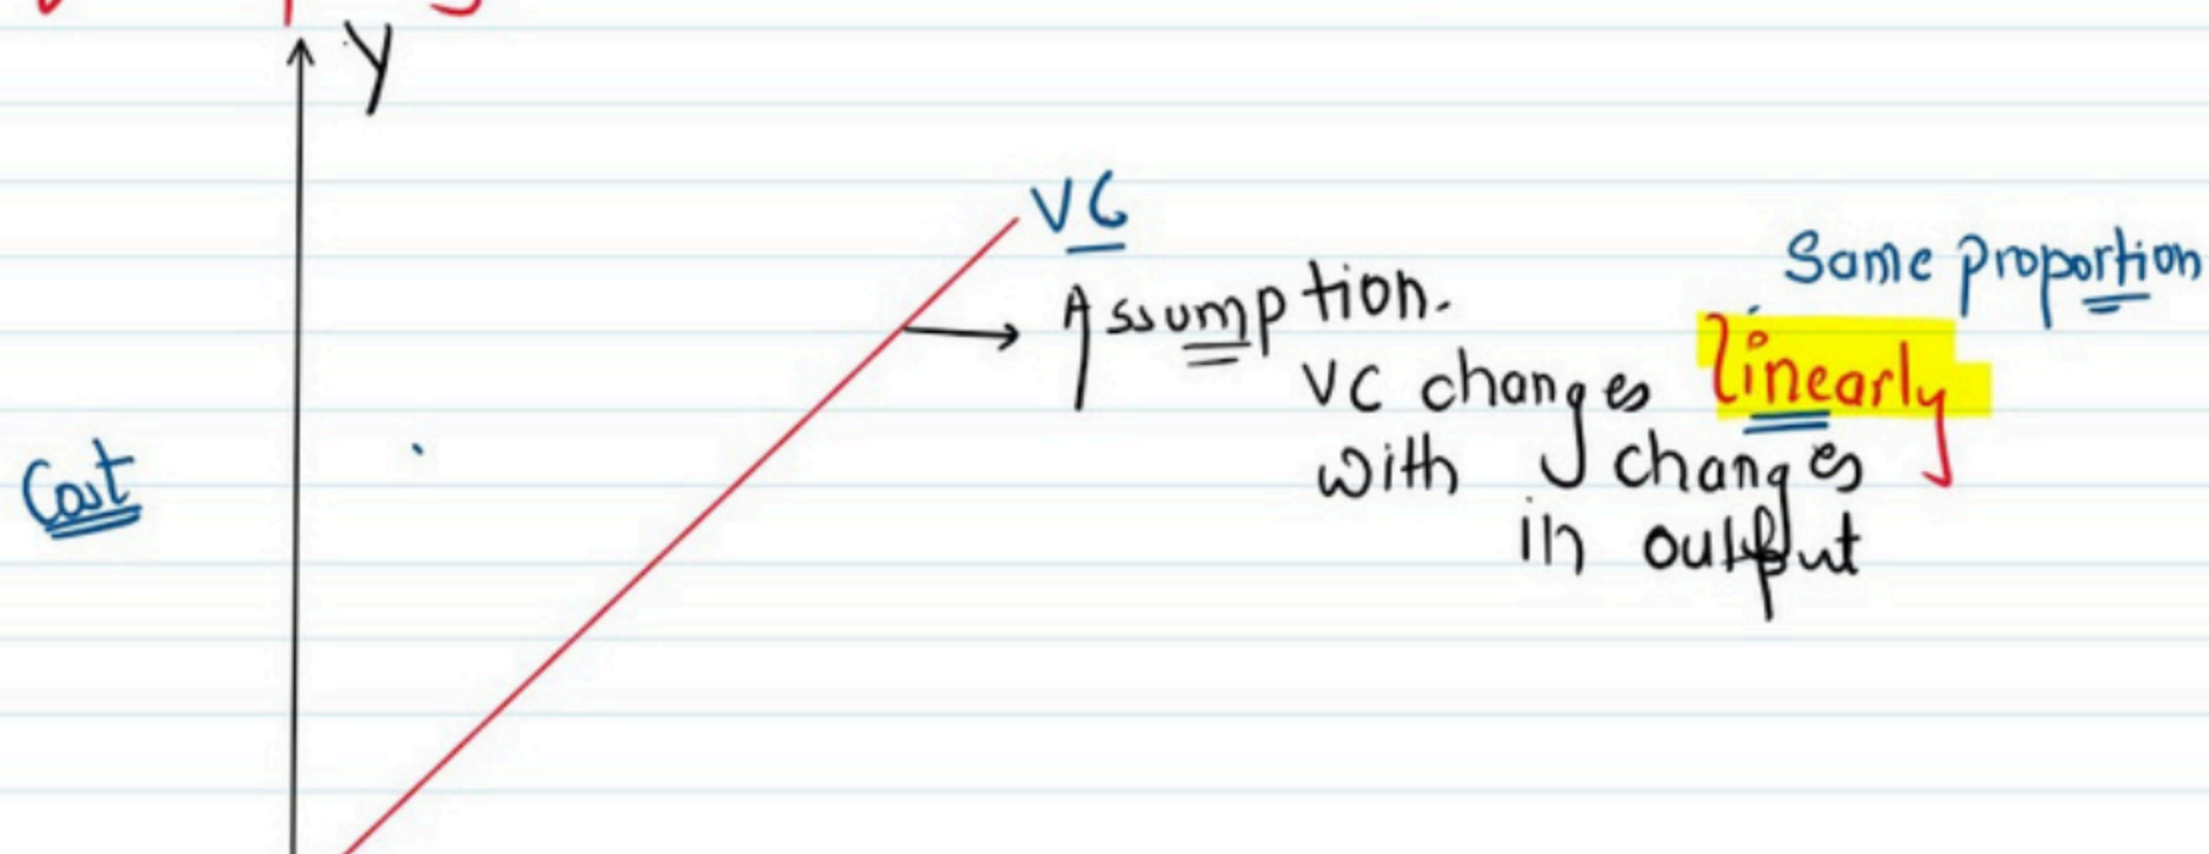 Y
VC
Same proportion
Assumption.
VC changes linearly
with changes
in output
Cost